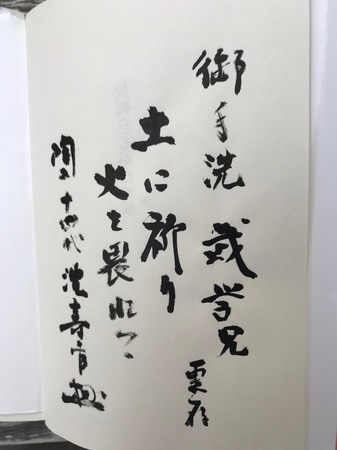 御手洗 学兄
恵存
土に祈り
火を畏れて
陶 十四代 沈寿官